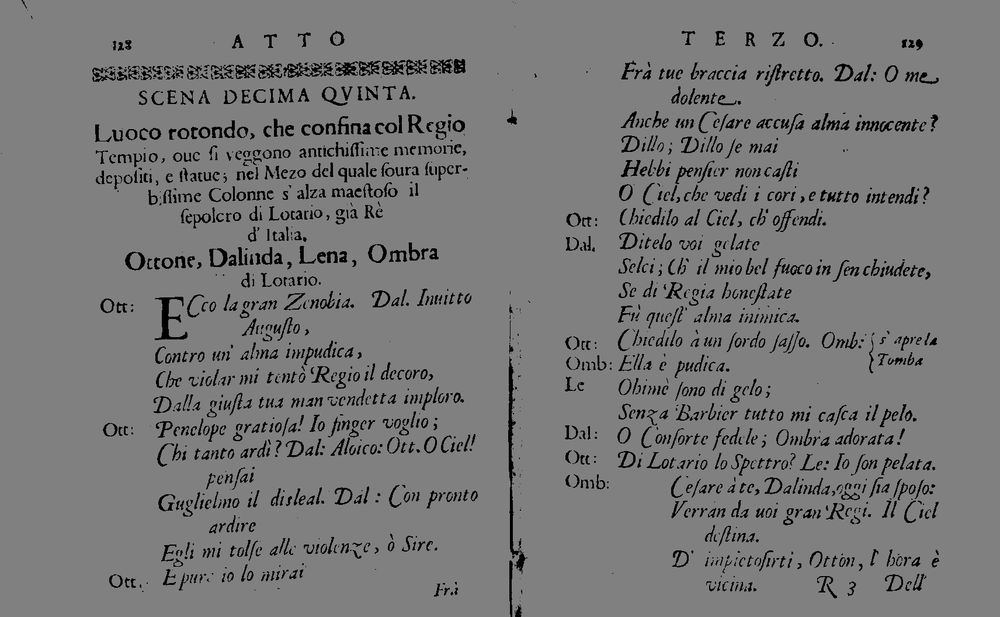 128 ATTO
SCENA DECIMA QVINTA.
Luoco rotondo, che confina col Regio
Tempio, oue ſi veggono antichiſſime memorie,
depoſiti, e ſtatue; nel Mezo del quale ſoura ſuper-
biſſime Colonne s' alza maeſtoſo il
ſepolcro di Lotario, già Rè
d' Italia.
Ottone, Dalinda, Lena, Ombra
di Lotario.
Ott: ECco la gran Zenobia. Dal. Inuitto
Auguſto,
Contro un' alma impudica,
Che violar mi tentò Regio il decoro,
Dalla giuſta tua man vendetta imploro.
Ott: Penelope gratioſa! Io finger voglio;
Chi tanto ardì? Dal: Aloico: Ott. O Ciel!
penſai
Guglielmo il disleal. Dal: Con pronto
ardire
Egli mi tolſe alle violenze, ò Sire.
Ott. E pure io lo mirai
Frà
TERZO. 129
Frà tue braccia riſtretto. Dal: O me
dolente.
Anche un Ceſare accuſa alma innocente?
Dillo; Dillo ſe mai
Hebbi penſier non caſti
O Ciel, che vedi i cori, e tutto intendi?
Ott: Chiedilo al Ciel, ch' offendi.
Dal. Ditelo voi gelate
Selci; Ch' il mio bel fuoco in ſen chiudete,
Se di Regia honeſtate
Fù queſt' alma inimica.
Ott: Chiedilo à un ſordo ſaſſo. Omb: { s' apre la
Omb: Ella è pudica. { Tomba
Le Ohimè ſono di gelo;
Senza Barbier tutto mi caſca il pelo.
Dal: O Conſorte fedele; Ombra adorata!
Ott: Di Lotario lo Spettro? Le: Io ſon pelata.
Omb: Ceſare à te, Dalinda, oggi ſia ſpoſo:
Verran da uoi gran Regi. Il Ciel
deſtina.
D' impietoſirti, Otton, l' hora è
vicina. R 3 Dell'